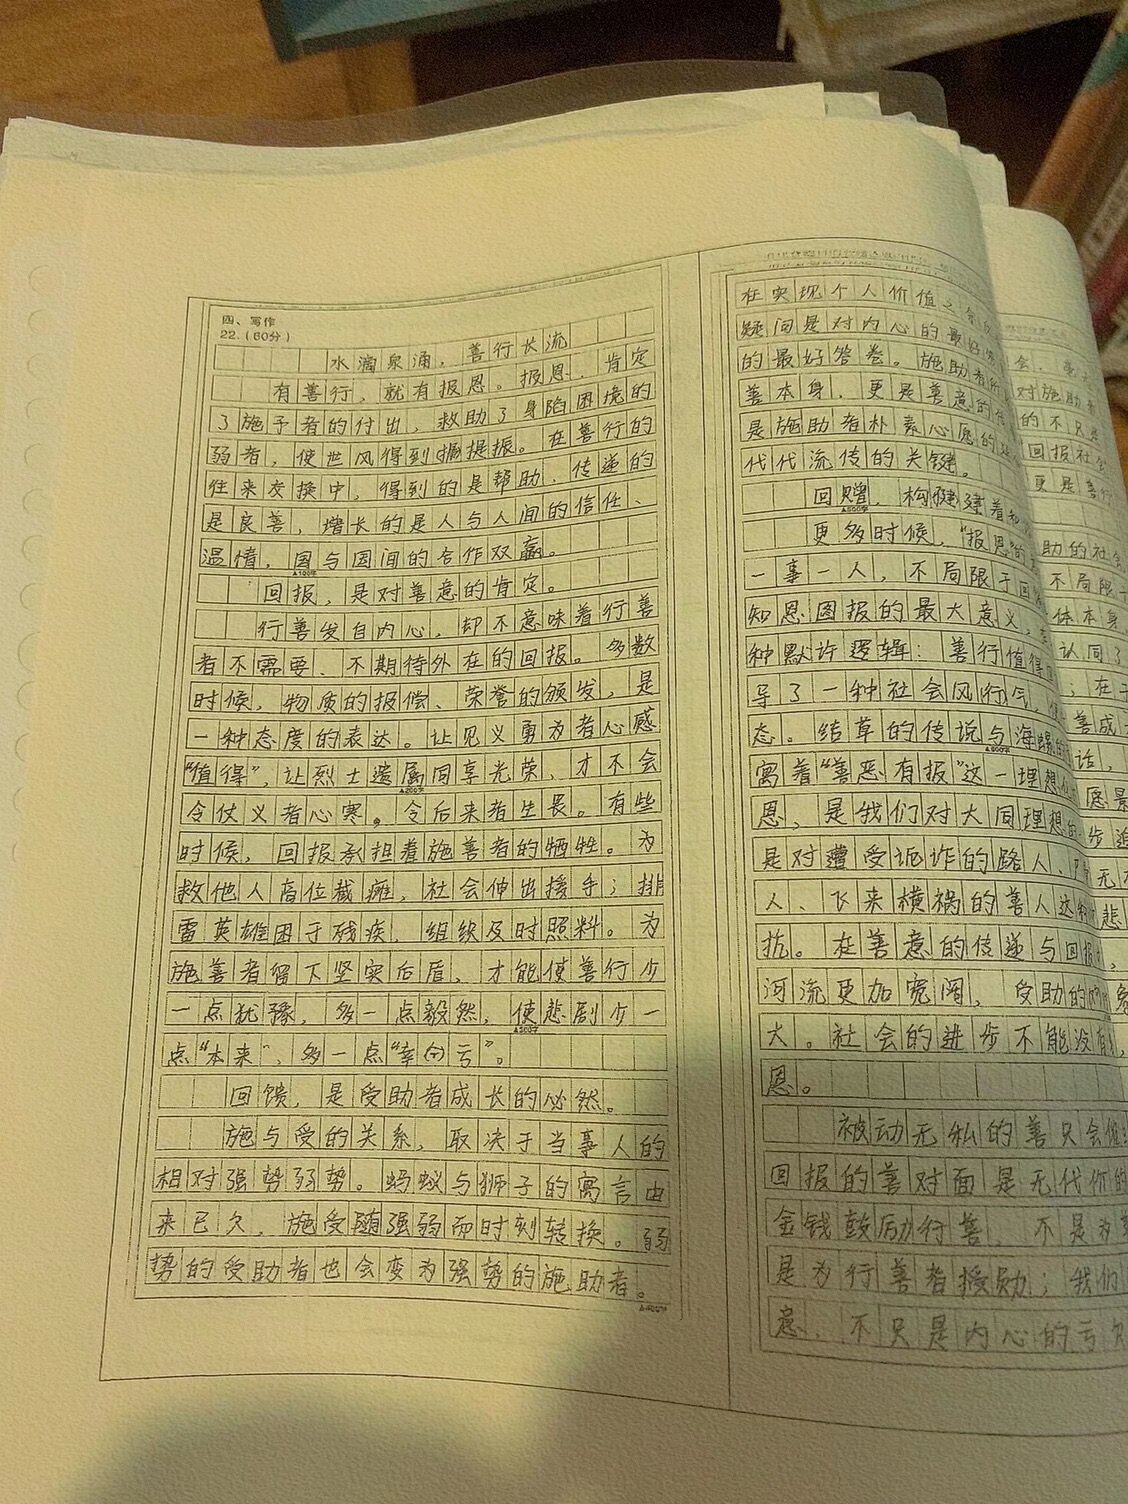 四、写作
22.(60分)
水滴泉涌，善行长流
有善行，就有报恩。报恩，肯定
了施予者的付出，救助了身陷困境的
弱者，使世风得到提振。在善行的
往来交换中，得到的是帮助，传递的
是良善，增长的是人与人间的信任、
温情，国与国间的合作双赢。
▲100字
回报，是对善意的肯定。
行善发自内心，却不意味着行善
者不需要、不期待外在的回报。多数
时候，物质的报偿、荣誉的颁发，是
一种态度的表达。让见义勇为者心感
“值得”，让烈士遗属同享光荣，才不会
▲200字
令仗义者心寒。令后来者生畏。有些
时候，回报承担着施善者的牺牲。为
救他人高位截瘫，社会伸出援手；排
雷英雄困于残疾，组织及时照料。为
施善者留下坚实后盾，才能使善行少
一点犹豫，多一点毅然，使悲剧少一
▲300字
点“本来”、多一点“幸亏”。
回馈，是受助者成长的必然。
施与受的关系，取决于当事人的
相对强势弱势。蚂蚁与狮子的寓言由
来已久，施受随强弱而时刻转换。弱
势的受助者也会变为强势的施助者。
▲400字
在实现个人价值之
疑问是对内心的最好
的最好答卷。施助者所
善本身，更是善意的传
是施助者朴素心愿的延
代代流传的关键。
回赠，构建着和
▲500字
更多时候，“报恩”的
一事一人，不局限于回
知恩图报的最大意义，在
种默许逻辑：善行值得
导了一种社会风气，
态。结草的传说与海螺的
▲600字
寓着“善恶有报”这一理想
恩，是我们对大同理想的
是对遭受讹诈的路人、
人、飞来横祸的善人这种
抗。在善意的传递与回报
河流更加宽阔，受助的
大。社会的进步不能没有
恩。
被动无私的善只会
回报的善对面是无代价的
金钱鼓励行善，不是为
是为行善者授勋；我们
意，不只是内心的亏欠